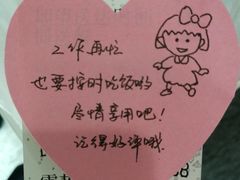 工作再忙
也要按时吃饭哟
尽情享用吧！
记得好评哦